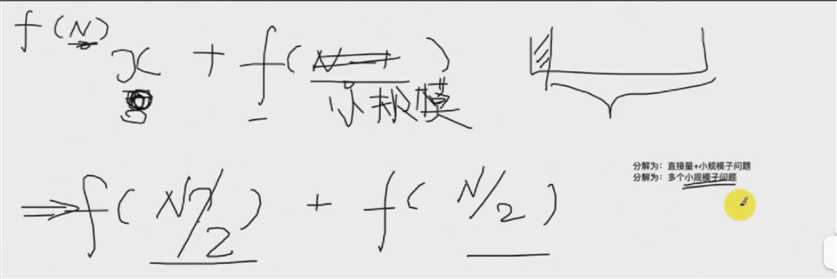 f(N)
x + f(N-1)
小规模
分解为：直接量+小规模子问题
分解为：多个小规模子问题
⇒f(N/2) + f(N/2)